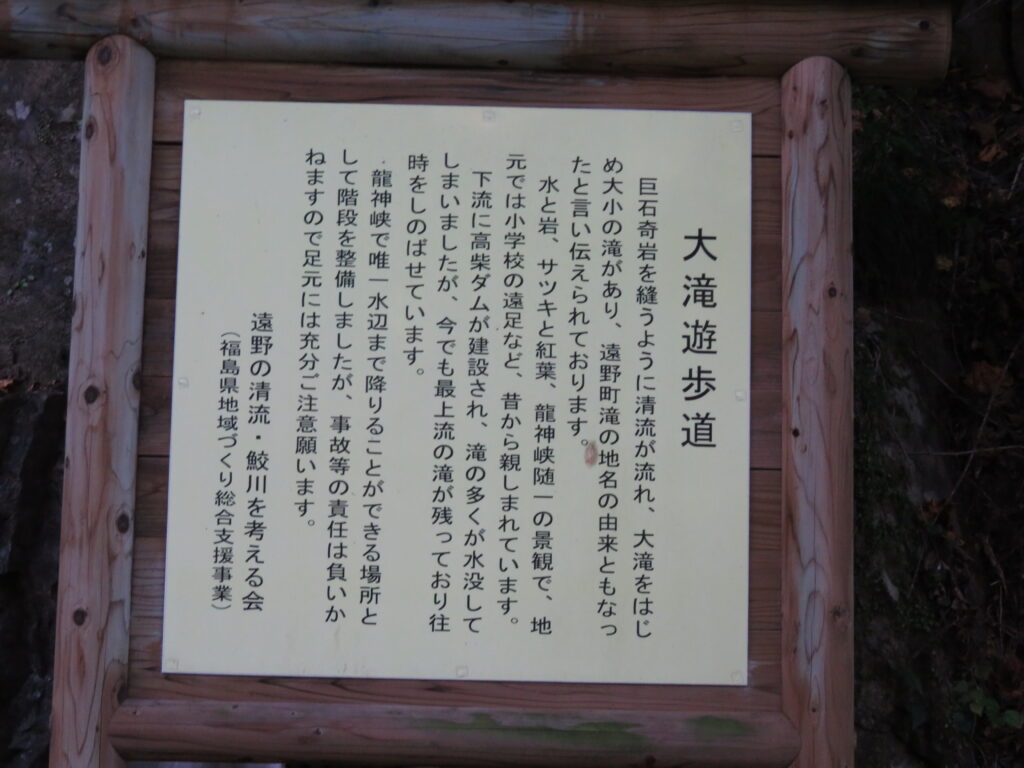 大滝遊歩道
巨石奇岩を縫うように清流が流れ、大滝をはじ
め大小の滝があり、遠野町滝の地名の由来ともなっ
たと言い伝えられております。
水と岩、サツキと紅葉、龍神峡随一の景観で、地
元では小学校の遠足など、昔から親しまれています。
下流に高柴ダムが建設され、滝の多くが水没して
しまいましたが、今でも最上流の滝が残っており往
時をしのばせています。
龍神峡で唯一水辺まで降りることができる場所と
して階段を整備しましたが、事故等の責任は負いか
ねますので足元には充分ご注意願います。
遠野の清流・鮫川を考える会
（福島県地域づくり総合支援事業）